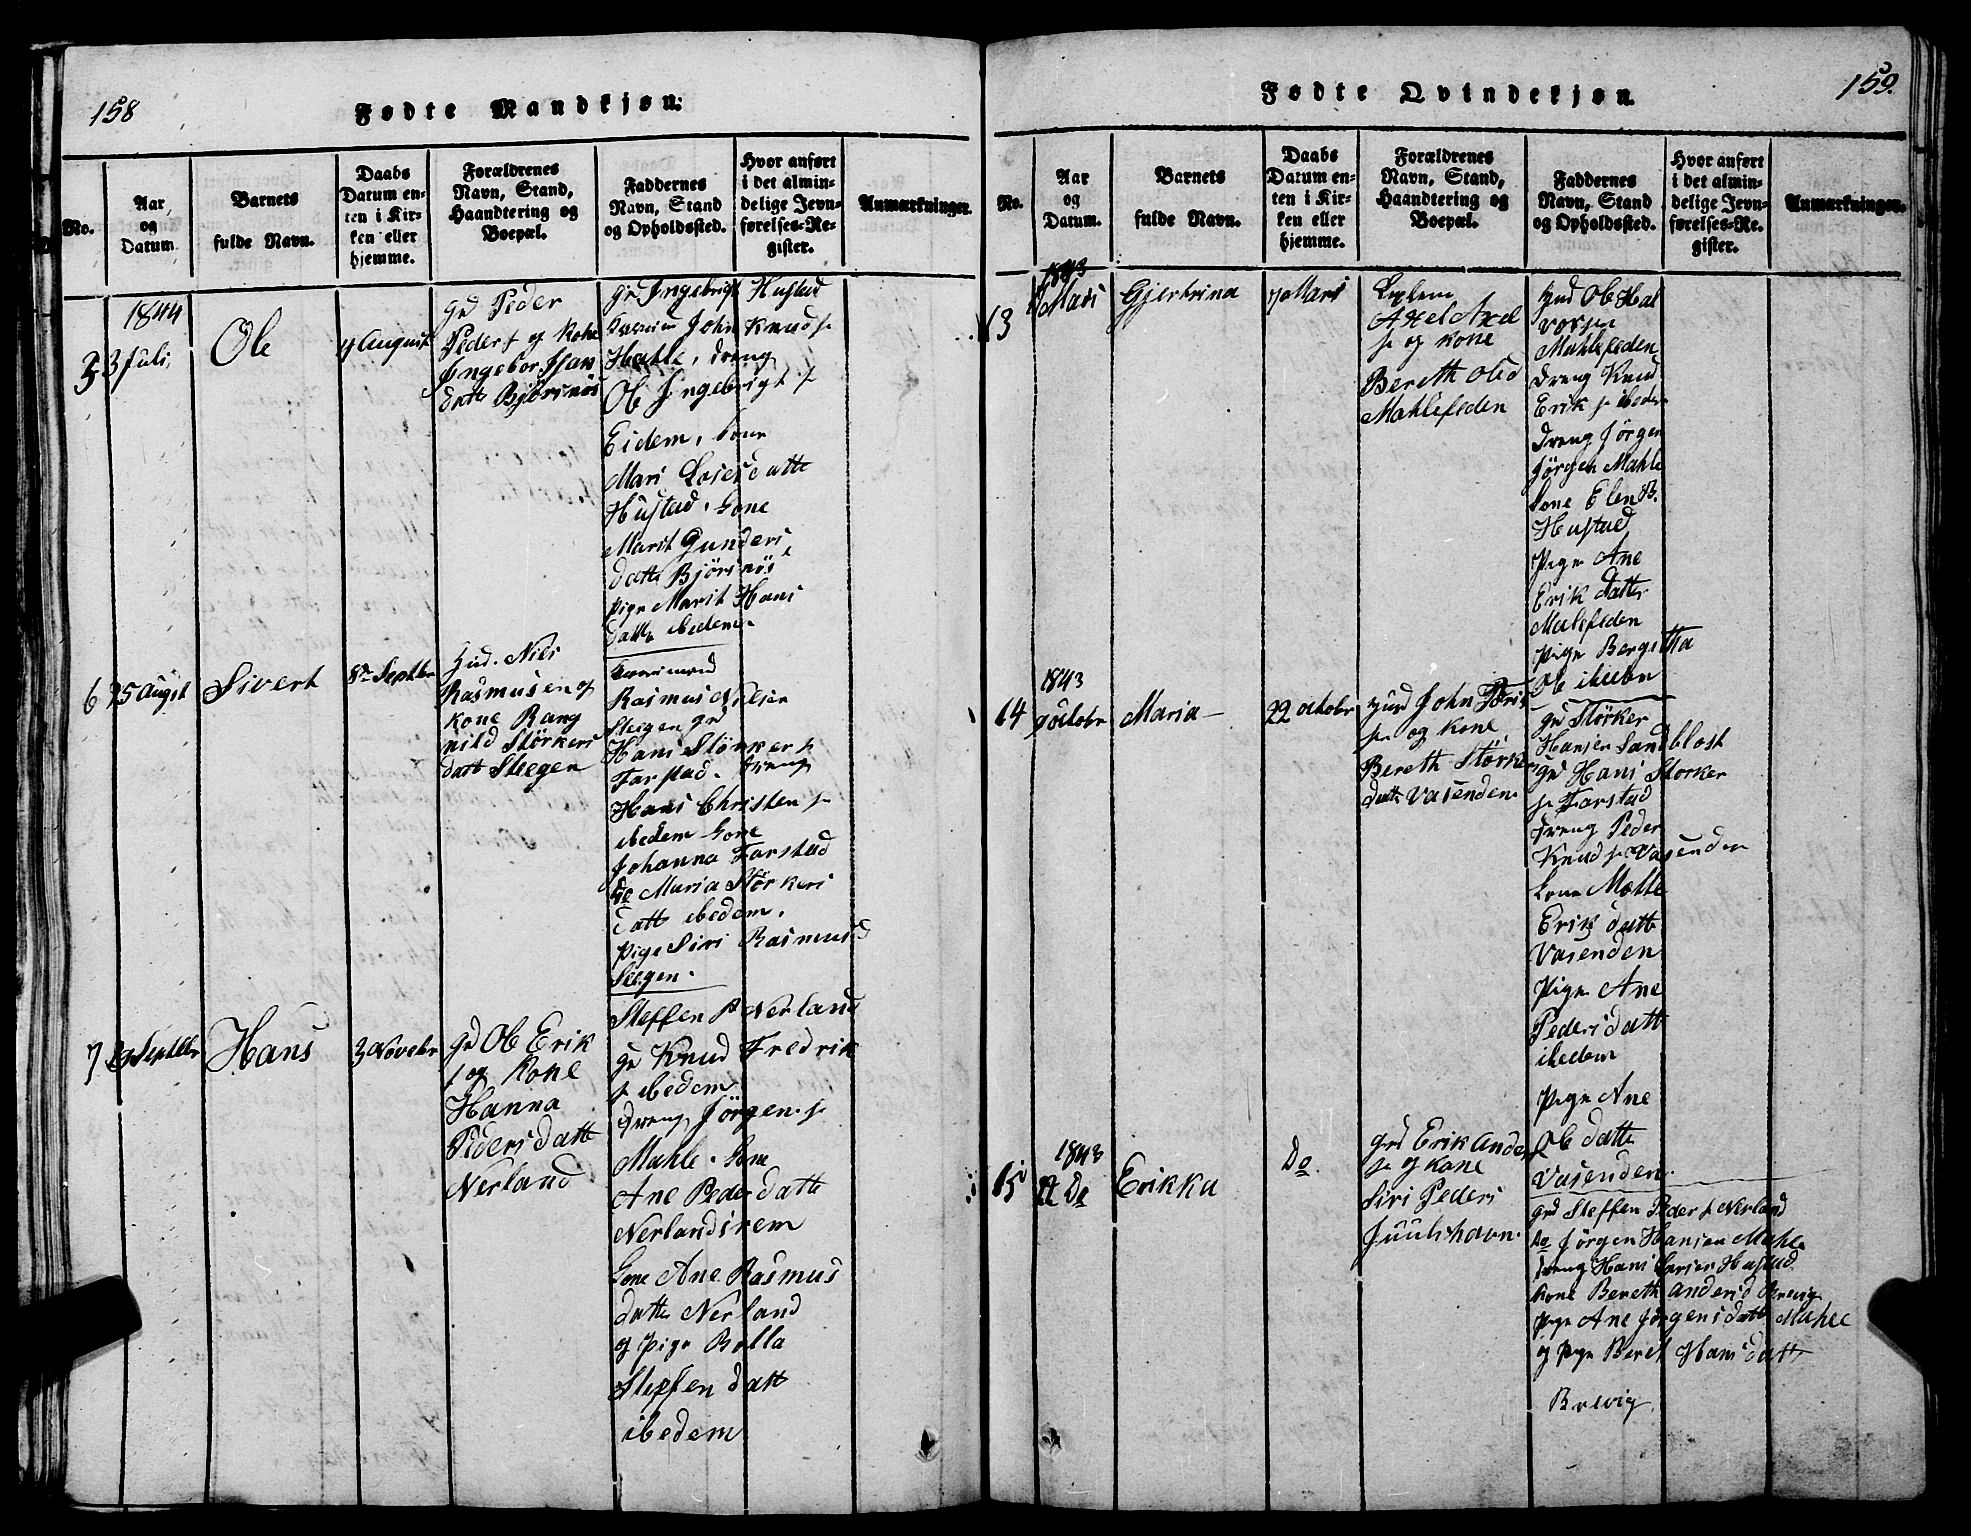 158
Fødte Mandkjøn.
No.
Aar og Datum.
Barnets fulde Navn.
Daabs Datum enten i Kirken eller hjemme.
Forældrenes Navn, Stand, Haandtering og Boepæl.
Faddernes Navn, Stand og Opholdssted.
Hvor anført i det almindelige Jevnførelses-Register.
Anmærkninger.
1844
3 Juli
Ole
4 August
Gd Peder
Peders og kone
Ingebor
datt Bjørsnøs
Gd Ingebrigt Hustad
John Knud s
Hahle, dreng
Ole Ingebrigt s
Eidem, kone
Mari datte
Hustad. kone
Marit Gunders
datte Bjørsnøs
pige Marit Hans
datte ibedem
6
25 August
Sivert
8de Septbr
Hud. Nils
Rasmusen og
kone Rang
nild Störkers
datt Steegen
Rasmus Nilsen
Steegen gd
Hans Störker s
Farstad. dreng
Hans Christen s
ibedem kone
Johanna Farstad
do Maria Störkers
datt ibedem.
pige Siri Rasmusd
Steegen.
7
Septbr
Hans
3 Novebr
gd Ole Erik
s og Kone
Hanna
Peders datt
Nerland
Steffen P Nerland
gd Knud Fredrik
s ibedem
dreng Jörgen s
Mahle. kone
Ane Peder datte
Nerlandsrem
kone Ane Rasmus
datte Nerland
og pige Rolla
Steffen datt
ibedem
159.
Fødte Qvindekjøn.
No.
Aar og Datum.
Barnets fulde Navn.
Daabs Datum enten i Kirken eller hjemme.
Forældrenes Navn, Stand, Haandtering og Boepæl.
Faddernes Navn, Stand og Opholdssted.
Hvor anført i det almindelige Jevnførelses-Register.
Anmærkninger.
13
1843
Mars
Gjertrina
7 Mars
Axel Axel
s og kone
Bereth Olsd
Mahlefeden
Hud Ole Hal
vorsen
Mahlefeden
dreng Knud
Erik s ibedem
dreng Jörgen
Jörgen Mahle
kone Elen B.
Hustad
pige Ane
Erik datter
Mahlefeden
pige Bergitta
Ole ibedm
14
1843
9 octobr
Maria
22 octobr
Hud John Tøris
sen og kone
Bereth Störkers
datte Vasenden
gd Störker
Hansen Sandblost
gd Hans Storker
s Farstad
dreng Peder
Knud s Vasenden
kone Malle
Erik datt
Vasenden
pige Ane
Peders datt
ibedem
pige Ane
Ole datte
Vasenden.
15
1843
22 Do
Erikka
Do.
Grd Erik Anders
s og kone
Siri Peders
Juulshavn.
grd Steffen Peder s Nerland
do Jörgen Hansen Mahle
dreng Hans Hustad
kone Bereth Andersd Brevig
pige Ane Jörgensdatt Mahle
og pige Beret Hansdatt
Brevig